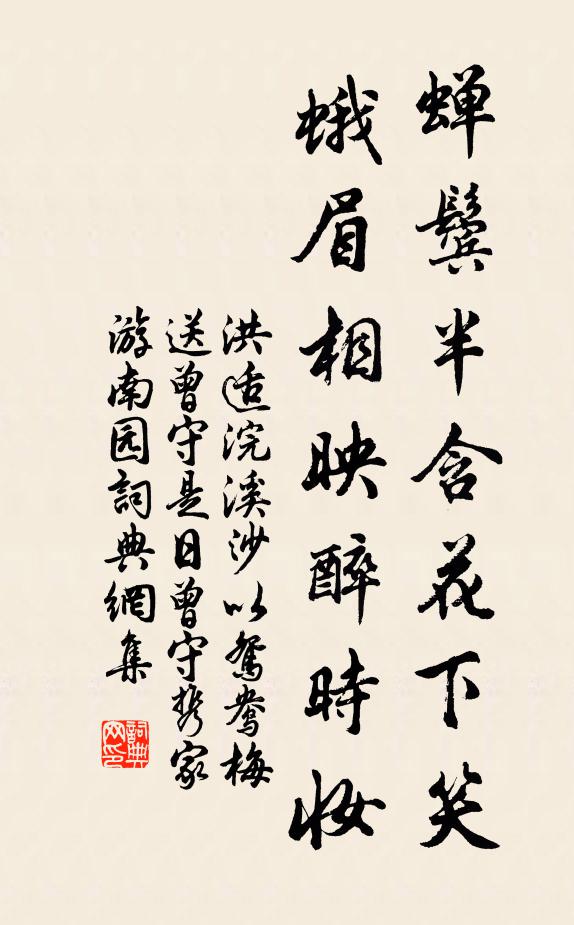 蝉鬓半含花下笑
蛾眉相映醉时妆
洪适浣溪沙以鸳鸯梅
送曾守是日曾守携家
游南园詞典網集
詞典
网印